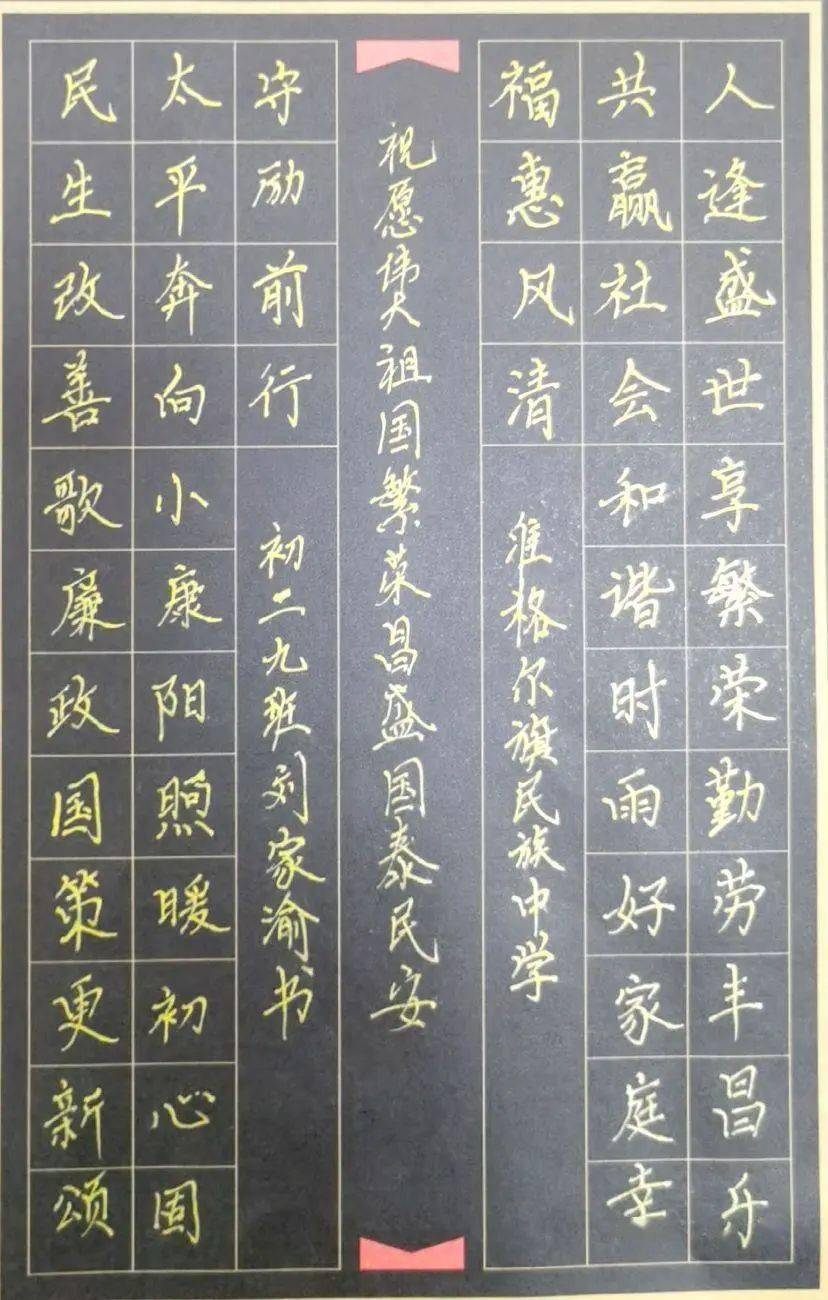 人逢盛世享繁荣勤劳丰昌乐
共赢社会和谐时雨好家庭幸
福惠风清
准格尔旗民族中学
祝愿伟大祖国繁荣昌盛国泰民安
民生改善歌廉政国策更新颂
太平奔向小康阳煦暖初心固
守励前行
初二九班刘家渝书